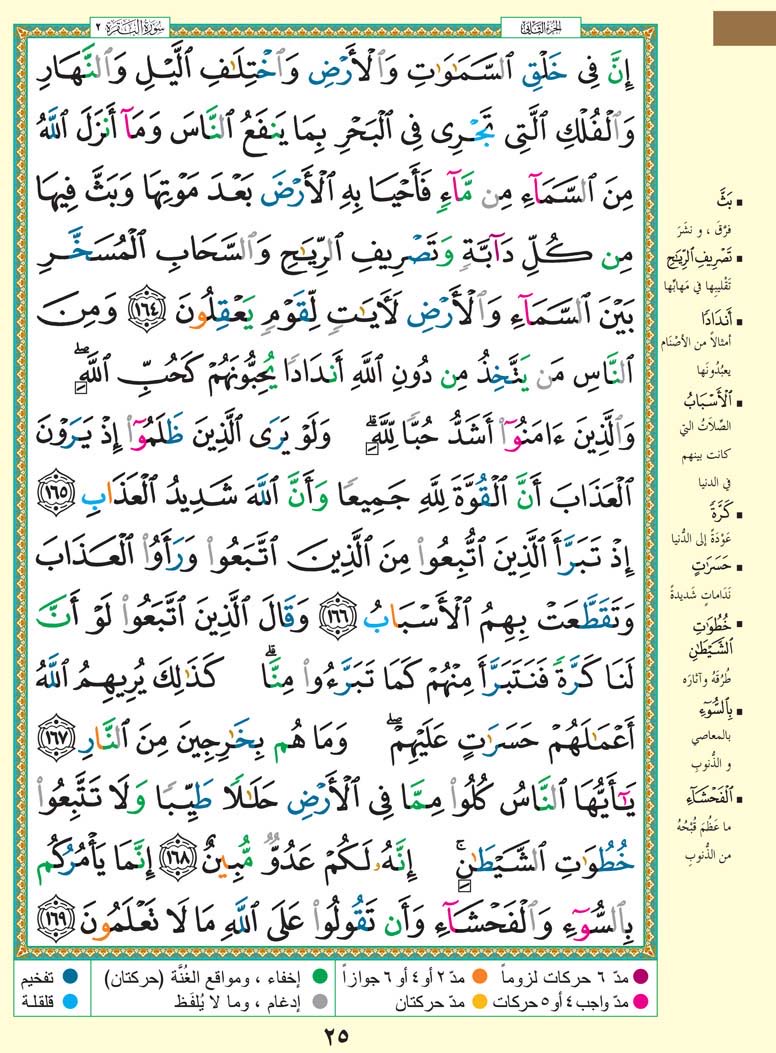 الجزء الثاني
سورة البقرة ٢
إِنَّ فِي خَلْقِ السَّمَٰوَٰتِ وَالْأَرْضِ وَاخْتِلَٰفِ الَّيْلِ وَالنَّهَارِ
وَالْفُلْكِ الَّتِي تَجْرِي فِي الْبَحْرِ بِمَا يَنفَعُ النَّاسَ وَمَآ أَنزَلَ اللَّهُ
مِنَ السَّمَآءِ مِن مَّآءٍ فَأَحْيَا بِهِ الْأَرْضَ بَعْدَ مَوْتِهَا وَبَثَّ فِيهَا
مِن كُلِّ دَآبَّةٍ وَتَصْرِيفِ الرِّيَٰحِ وَالسَّحَابِ الْمُسَخَّرِ
بَيْنَ السَّمَآءِ وَالْأَرْضِ لَأٓيَٰتٍ لِّقَوْمٍ يَعْقِلُونَ ١٦٤ وَمِنَ
النَّاسِ مَن يَتَّخِذُ مِن دُونِ اللَّهِ أَندَادًا يُحِبُّونَهُمْ كَحُبِّ اللَّهِ ۖ
وَالَّذِينَ ءَامَنُوٓا أَشَدُّ حُبًّا لِّلَّهِ ۗ وَلَوْ يَرَى الَّذِينَ ظَلَمُوٓا إِذْ يَرَوْنَ
الْعَذَابَ أَنَّ الْقُوَّةَ لِلَّهِ جَمِيعًا وَأَنَّ اللَّهَ شَدِيدُ الْعَذَابِ ١٦٥
إِذْ تَبَرَّأَ الَّذِينَ اتُّبِعُوا مِنَ الَّذِينَ اتَّبَعُوا وَرَأَوُا الْعَذَابَ
وَتَقَطَّعَتْ بِهِمُ الْأَسْبَابُ ١٦٦ وَقَالَ الَّذِينَ اتَّبَعُوا لَوْ أَنَّ
لَنَا كَرَّةً فَنَتَبَرَّأَ مِنْهُمْ كَمَا تَبَرَّءُوا مِنَّا ۗ كَذَٰلِكَ يُرِيهِمُ اللَّهُ
أَعْمَٰلَهُمْ حَسَرَٰتٍ عَلَيْهِمْ ۖ وَمَا هُم بِخَٰرِجِينَ مِنَ النَّارِ ١٦٧
يَٰٓأَيُّهَا النَّاسُ كُلُوا مِمَّا فِي الْأَرْضِ حَلَٰلًا طَيِّبًا وَلَا تَتَّبِعُوا
خُطُوَٰتِ الشَّيْطَٰنِ ۚ إِنَّهُۥ لَكُمْ عَدُوٌّ مُّبِينٌ ١٦٨ إِنَّمَا يَأْمُرُكُم
بِالسُّوٓءِ وَالْفَحْشَآءِ وَأَن تَقُولُوا عَلَى اللَّهِ مَا لَا تَعْلَمُونَ ١٦٩
▪ بَثَّ
فرَّقَ ، و نَشَرَ
▪ تَصْرِيفِ الرِّيَٰحِ
تَقْلِيبِها في مَهابِّها
▪ أَندَادًا
أمثالاً من الأصْنَام
يعبُدُونَها
▪ الْأَسْبَابُ
الصِّلَاتُ التي
كانت بينهم
في الدنيا
▪ كَرَّةً
عَوْدَةً إلى الدُّنيا
▪ حَسَرَٰتٍ
نَدَاماتٍ شَديدةً
▪ خُطُوَٰتِ
الشَّيْطَٰنِ
طُرُقَهُ وآثارَه
▪ بِالسُّوٓءِ
بالمعاصي
و الذُّنوبِ
▪ الْفَحْشَآءِ
ما عَظُمَ قُبْحُهُ
من الذُّنوبِ
مدّ ٦ حركات لزوماً
مدّ ٢ أو ٤ أو ٦ جوازاً
إخفاء ، ومواقع الغُنَّة (حركتان)
تفخيم
مدّ واجب ٤ أو ٥ حركات
مدّ حركتان
إدغام ، وما لا يُلفَظ
قلقلة
٢٥